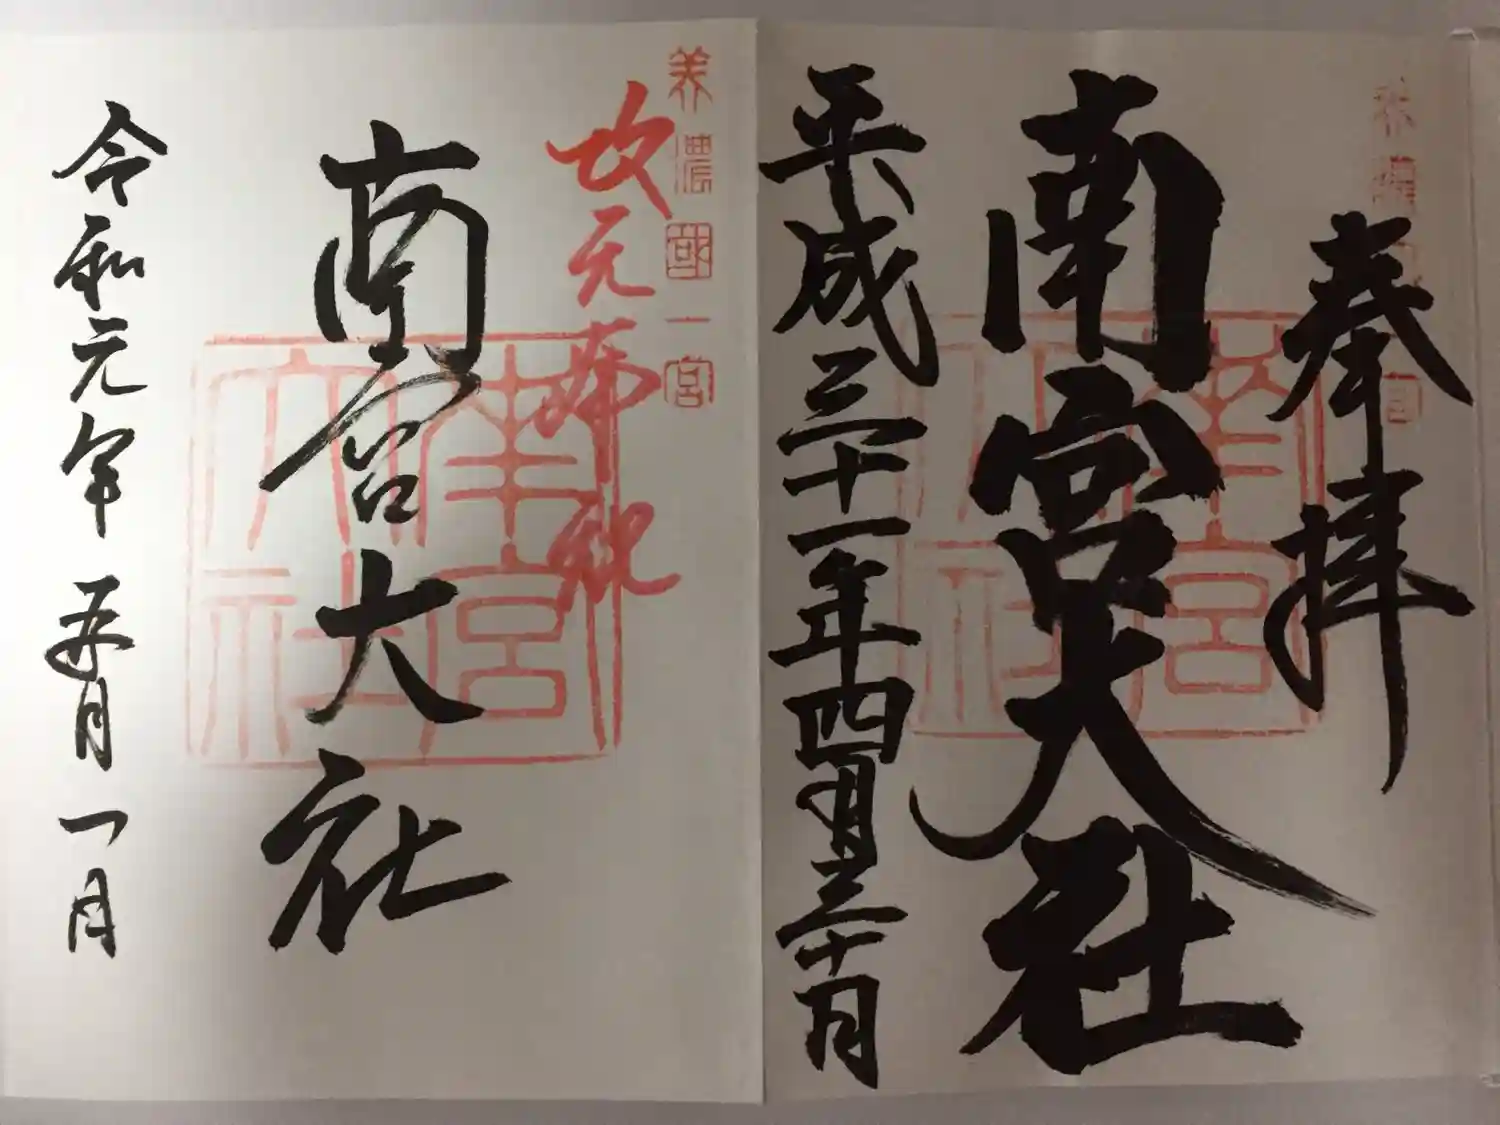 美濃國一宮
奉拝
南宮大社
南宮大社
平成三十一年四月三十日
美濃國一宮
改元奉祝
南宮大社
南宮大社
令和元年五月一日